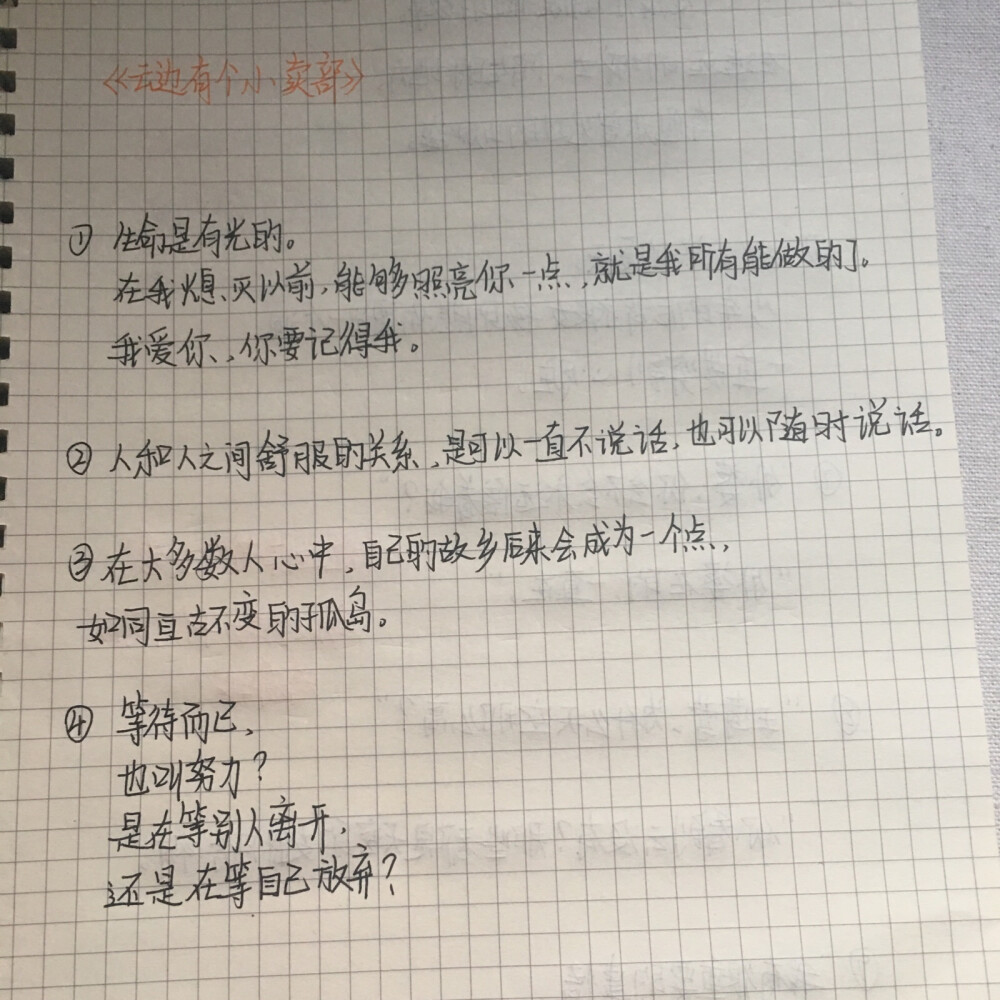 《云边有个小卖部》
① 生命是有光的。
在我熄灭以前,能够照亮你一点,就是我所有能做的了。
我爱你,你要记得我。
② 人和人之间舒服的关系,是可以一直不说话,也可以随时说话。
③ 在大多数人心中,自己的故乡后来会成为一个点,
如同亘古不变的孤岛。
④ 等待而已,
也叫努力?
是在等别人离开,
还是在等自己放弃?